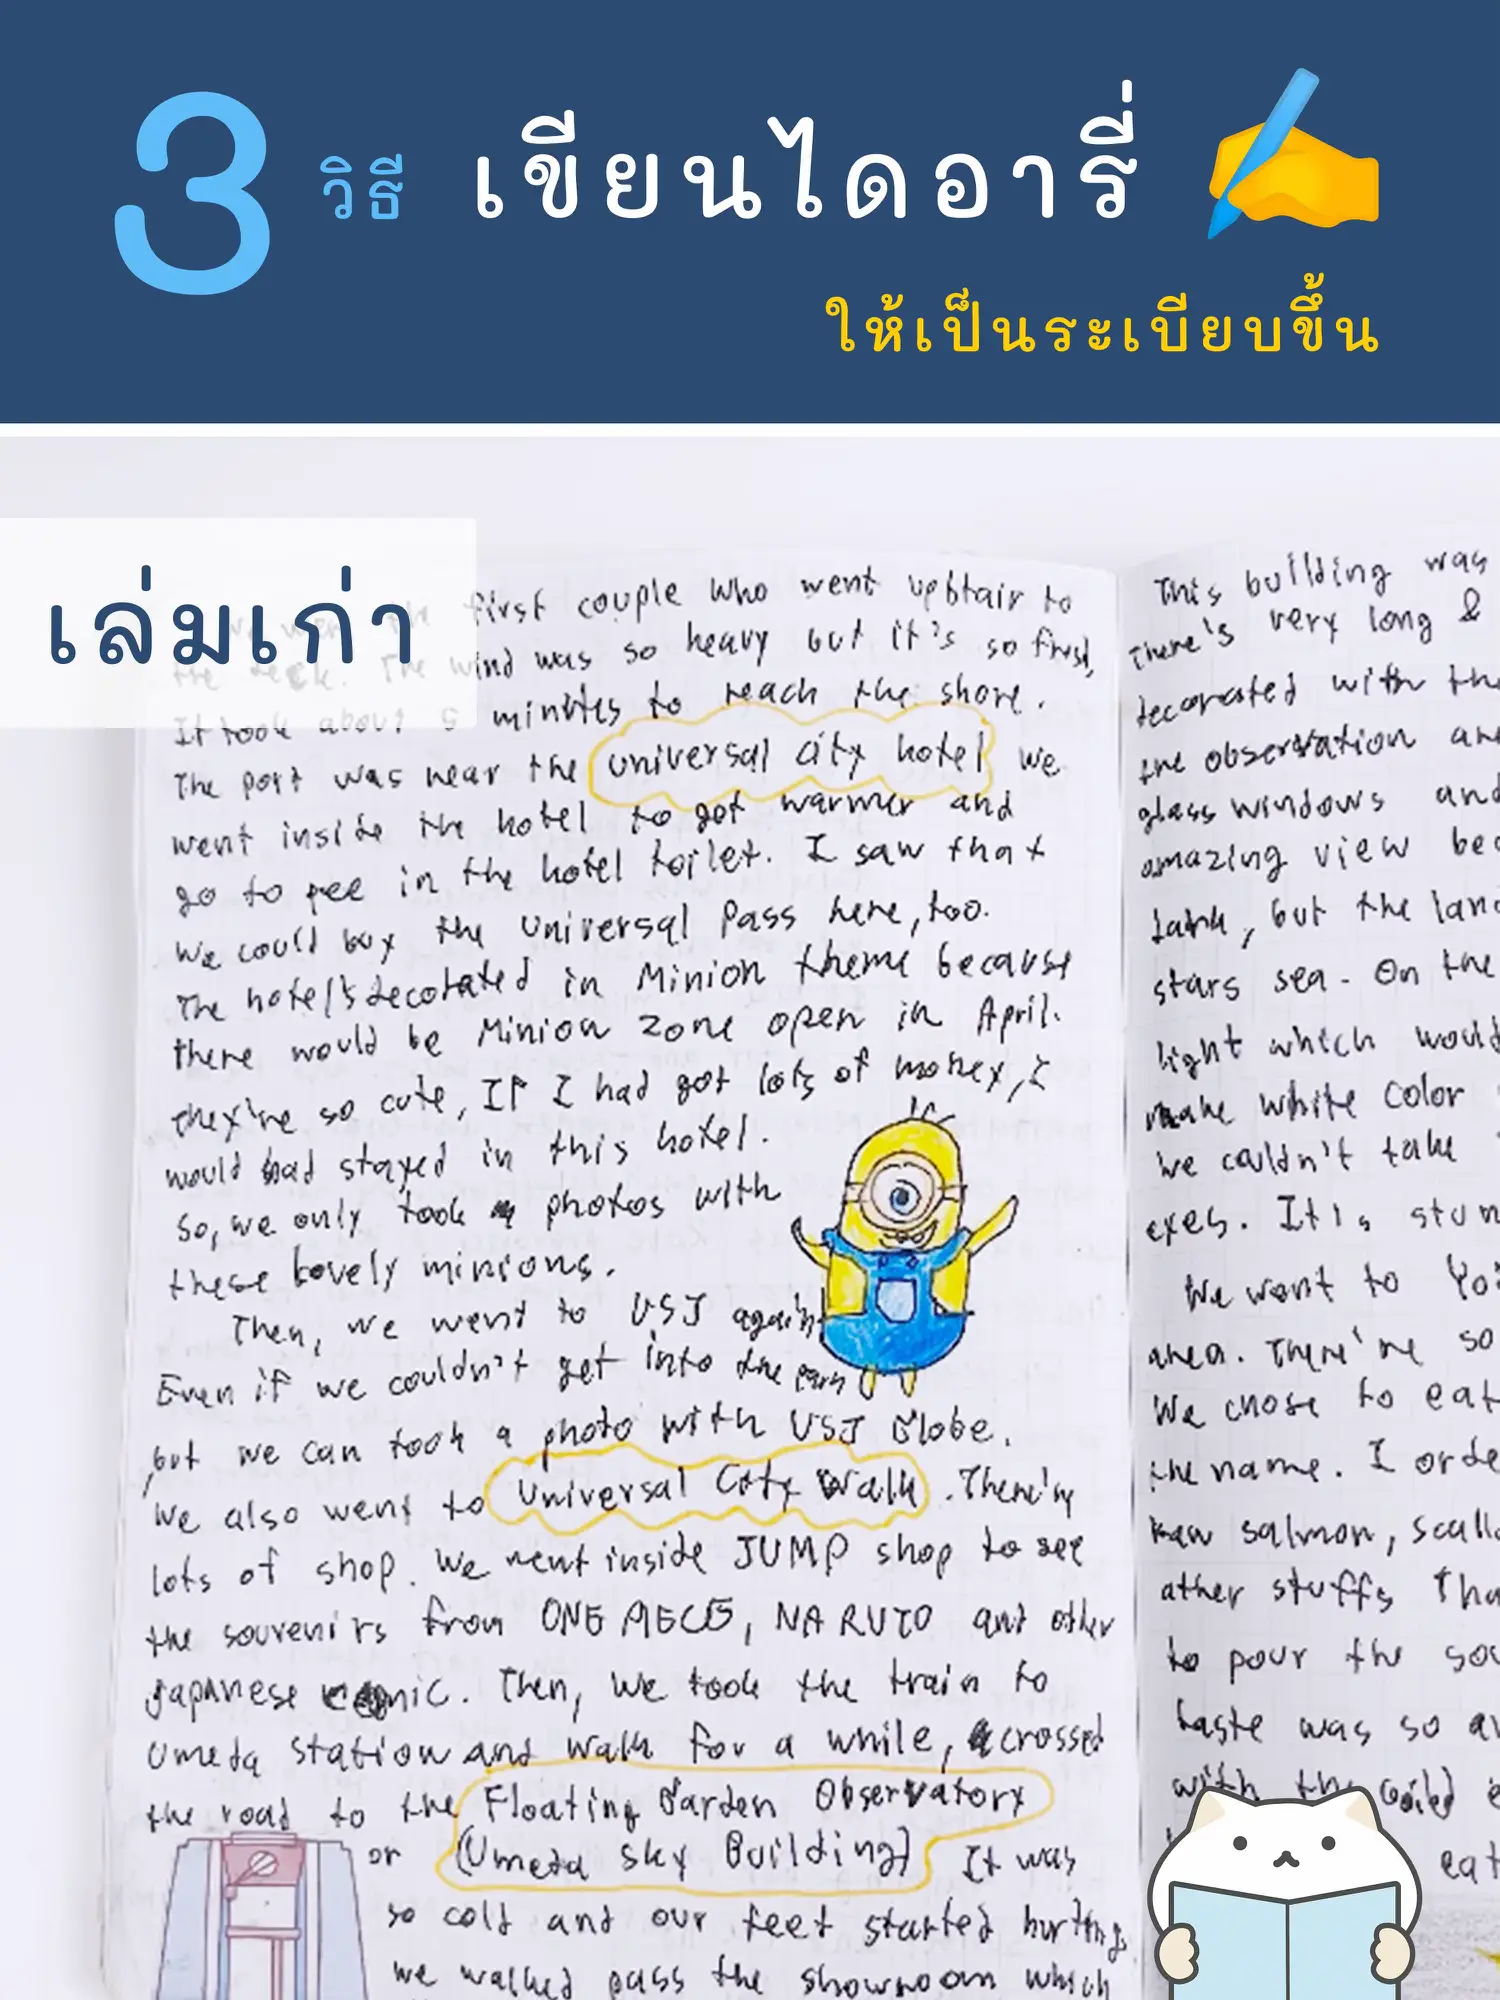 3 วิธี เขียนไดอารี่
ให้เป็นระเบียบขึ้น
เล่มเก่า
first couple who went upstair to
the deck. The wind was so heavy but it's so fresh,
It took about 5 minutes to reach the shore.
The port was near the Universal city hotel we
went inside the hotel to get warmer and
go to pee in the hotel toilet. I saw that
we could buy the Universal Pass here, too.
The hotel's decorated in Minion theme because
there would be Minion Zone open in April.
They're so cute, If I had got lots of money, I
would had stayed in this hotel.
So, we only took photos with
these lovely minions.
Then, we went to USJ again
Even if we couldn't get into the
, but we can took a photo with USJ Globe.
We also went to Universal City Walk. There're
lots of shop. We went inside JUMP shop to see
the souvenirs from ONE PIECE, NARUTO and other
Japanese comic. Then, we took the train to
Umeda station and walk for a while, crossed
the road to the Floating Garden Observatory
or (Umeda Sky Building) It was
so cold and our feet started hurting.
we walked pass the showroom which
This building was
There's very long &
decorated with the
the observation and
glass windows and
amazing view bec
dark, but the land
stars sea. On the
light which would
make white color
we couldn't take
eyes. It's stun
We went to Yo
area. There're so
We chose to eat
the name. I orde
Raw salmon, scallo
other stuffs Tha
to pour the so
taste was so a
with the boiled e
eat